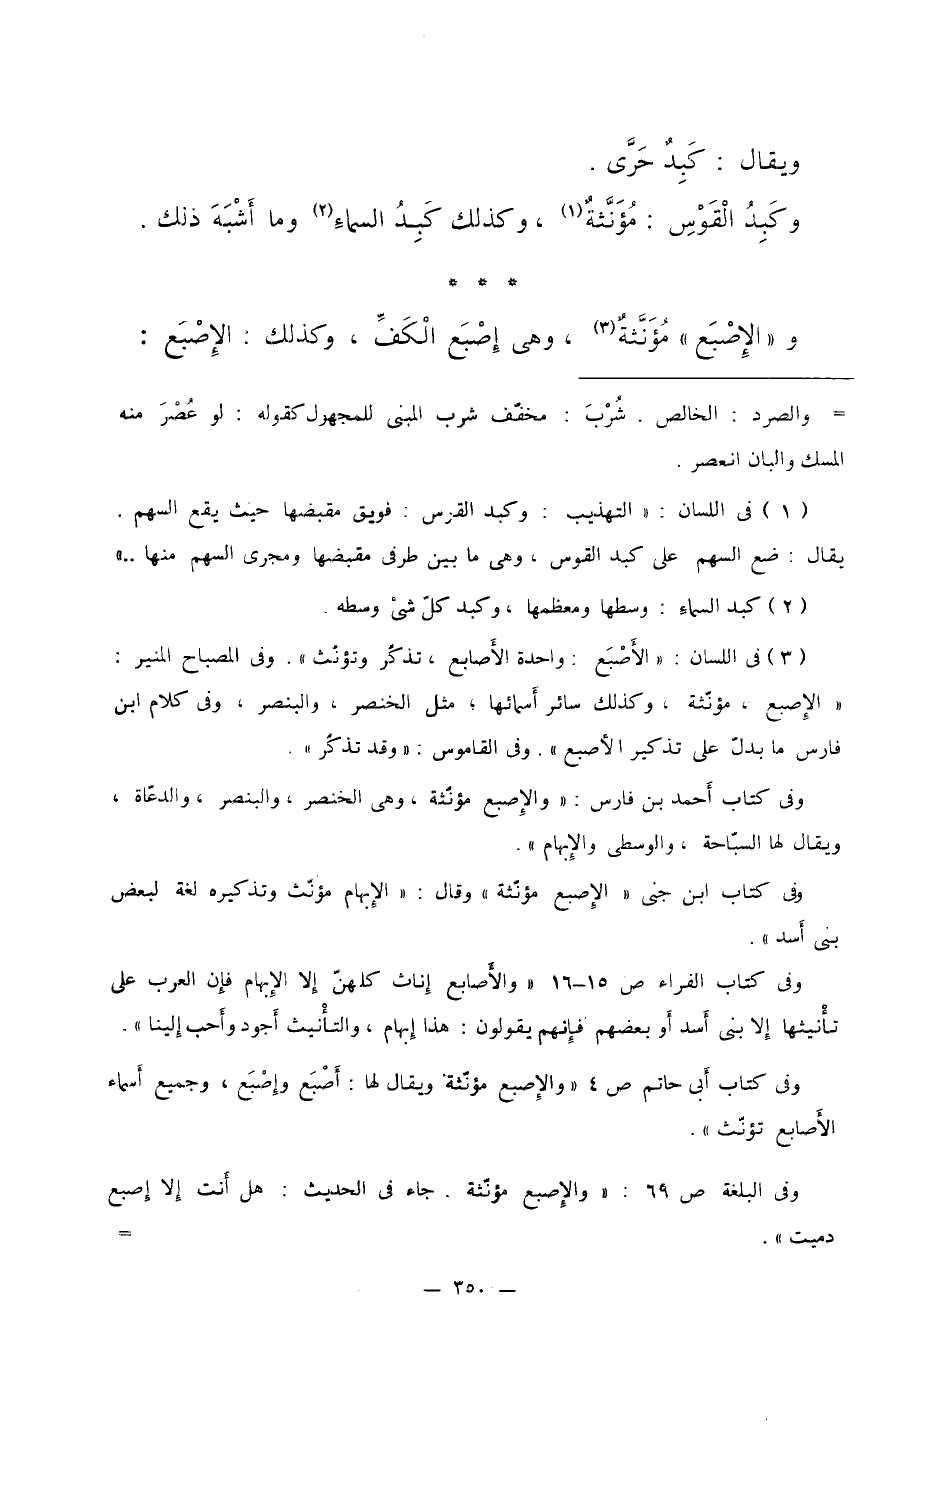 ويقال : كَبِدٌ حَرَّى .
وكَبِدُ الْقَوْسِ : مُؤَنَّثةٌ(١) ، وكذلك كَبِدُ السماءِ(٢) وما أَشْبَهَ ذلك .
* * *
و « الإِصْبَع » مُؤَنَّثةٌ(٣) ، وهى إِصْبَع الْكَفِّ ، وكذلك : الإِصْبَع :
= والصرد : الخالص . شُرْبَ : مخفّف شرب المبنى للمجهول كقوله : لو عُصْرَ منه
المسك والبان انعصر .
( ١ ) فى اللسان : « التهذيب : وكبد القرس : فويق مقبضها حيث يقع السهم .
يقال : ضع السهم على كبد القوس ، وهى ما بين طرفى مقبضها ومجرى السهم منها .. »
( ٢ ) كبد السماء : وسطها ومعظمها ، وكبد كلّ شئ وسطه .
( ٣ ) فى اللسان : « الأَصْبَع : واحدة الأَصابع ، تذكّر وتؤنّث » . وفى المصباح المنير :
« الإِصبع ، مؤنّثة ، وكذلك سائر أَسمائها ؛ مثل الخنصر ، والبنصر ، وفى كلام ابن
فارس ما بدلّ على تذكير الأصبع » . وفى القاموس : « وقد تذكّر » .
وفى كتاب أَحمد بن فارس : « والإِصبع مؤنّثة ، وهى الخنصر ، والبنصر ، والدعّاة ،
ويقال لها السبّاحة ، والوسطى والإِبهام » .
وفى كتاب ابن جنى « الإِصبع مؤنّثة » وقال : « الإِبهام مؤنّث وتذكيره لغة لبعض
بنى أَسد » .
وفى كتاب الفراء ص ١٥–١٦ « والأَصابع إِناث كلهنّ إِلا الإِبهام فإِن العرب على
تأْنيثها إِلا بنى أَسد أَو بعضهم فإِنهم يقولون : هذا إِبهام ، والتأْنيث أَجود وأَحب إِلينا » .
وفى كتاب أَبى حاتم ص ٤ « والإِصبع مؤنّثة ويقال لها : أَصْبَع وإِصْبَع ، وجميع أَسماء
الأَصابع تؤنّث » .
وفى البلغة ص ٦٩ : « والإِصبع مؤنّثة . جاء فى الحديث : هل أَنت إِلا إِصبع
دميت » . =
— ٣٥٠ —